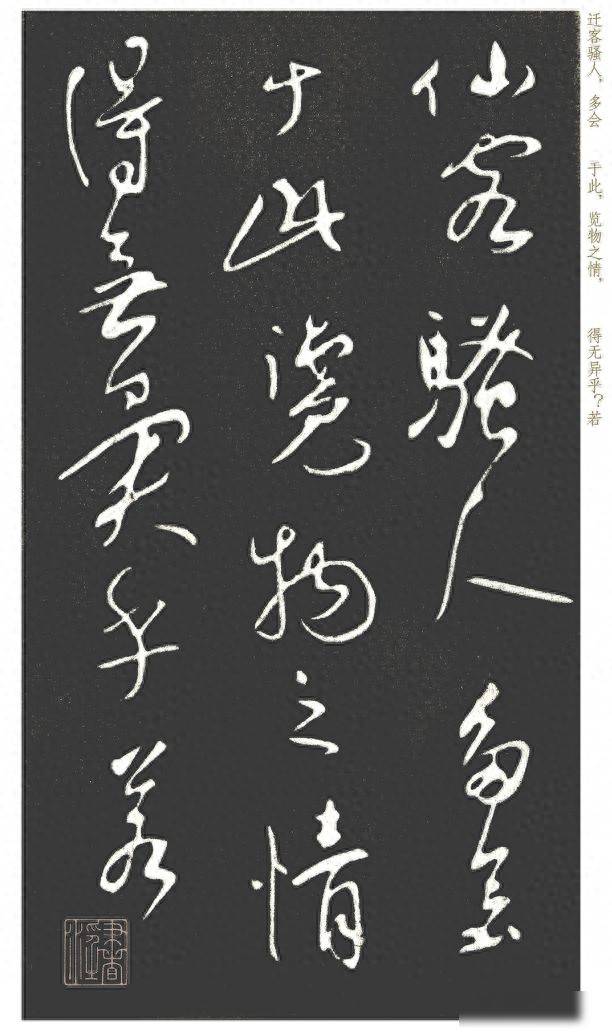 迁客骚人，多会　于此，览物之情，　得无异乎？若
仙客騷人多會
于此覽物之情
得無異乎若